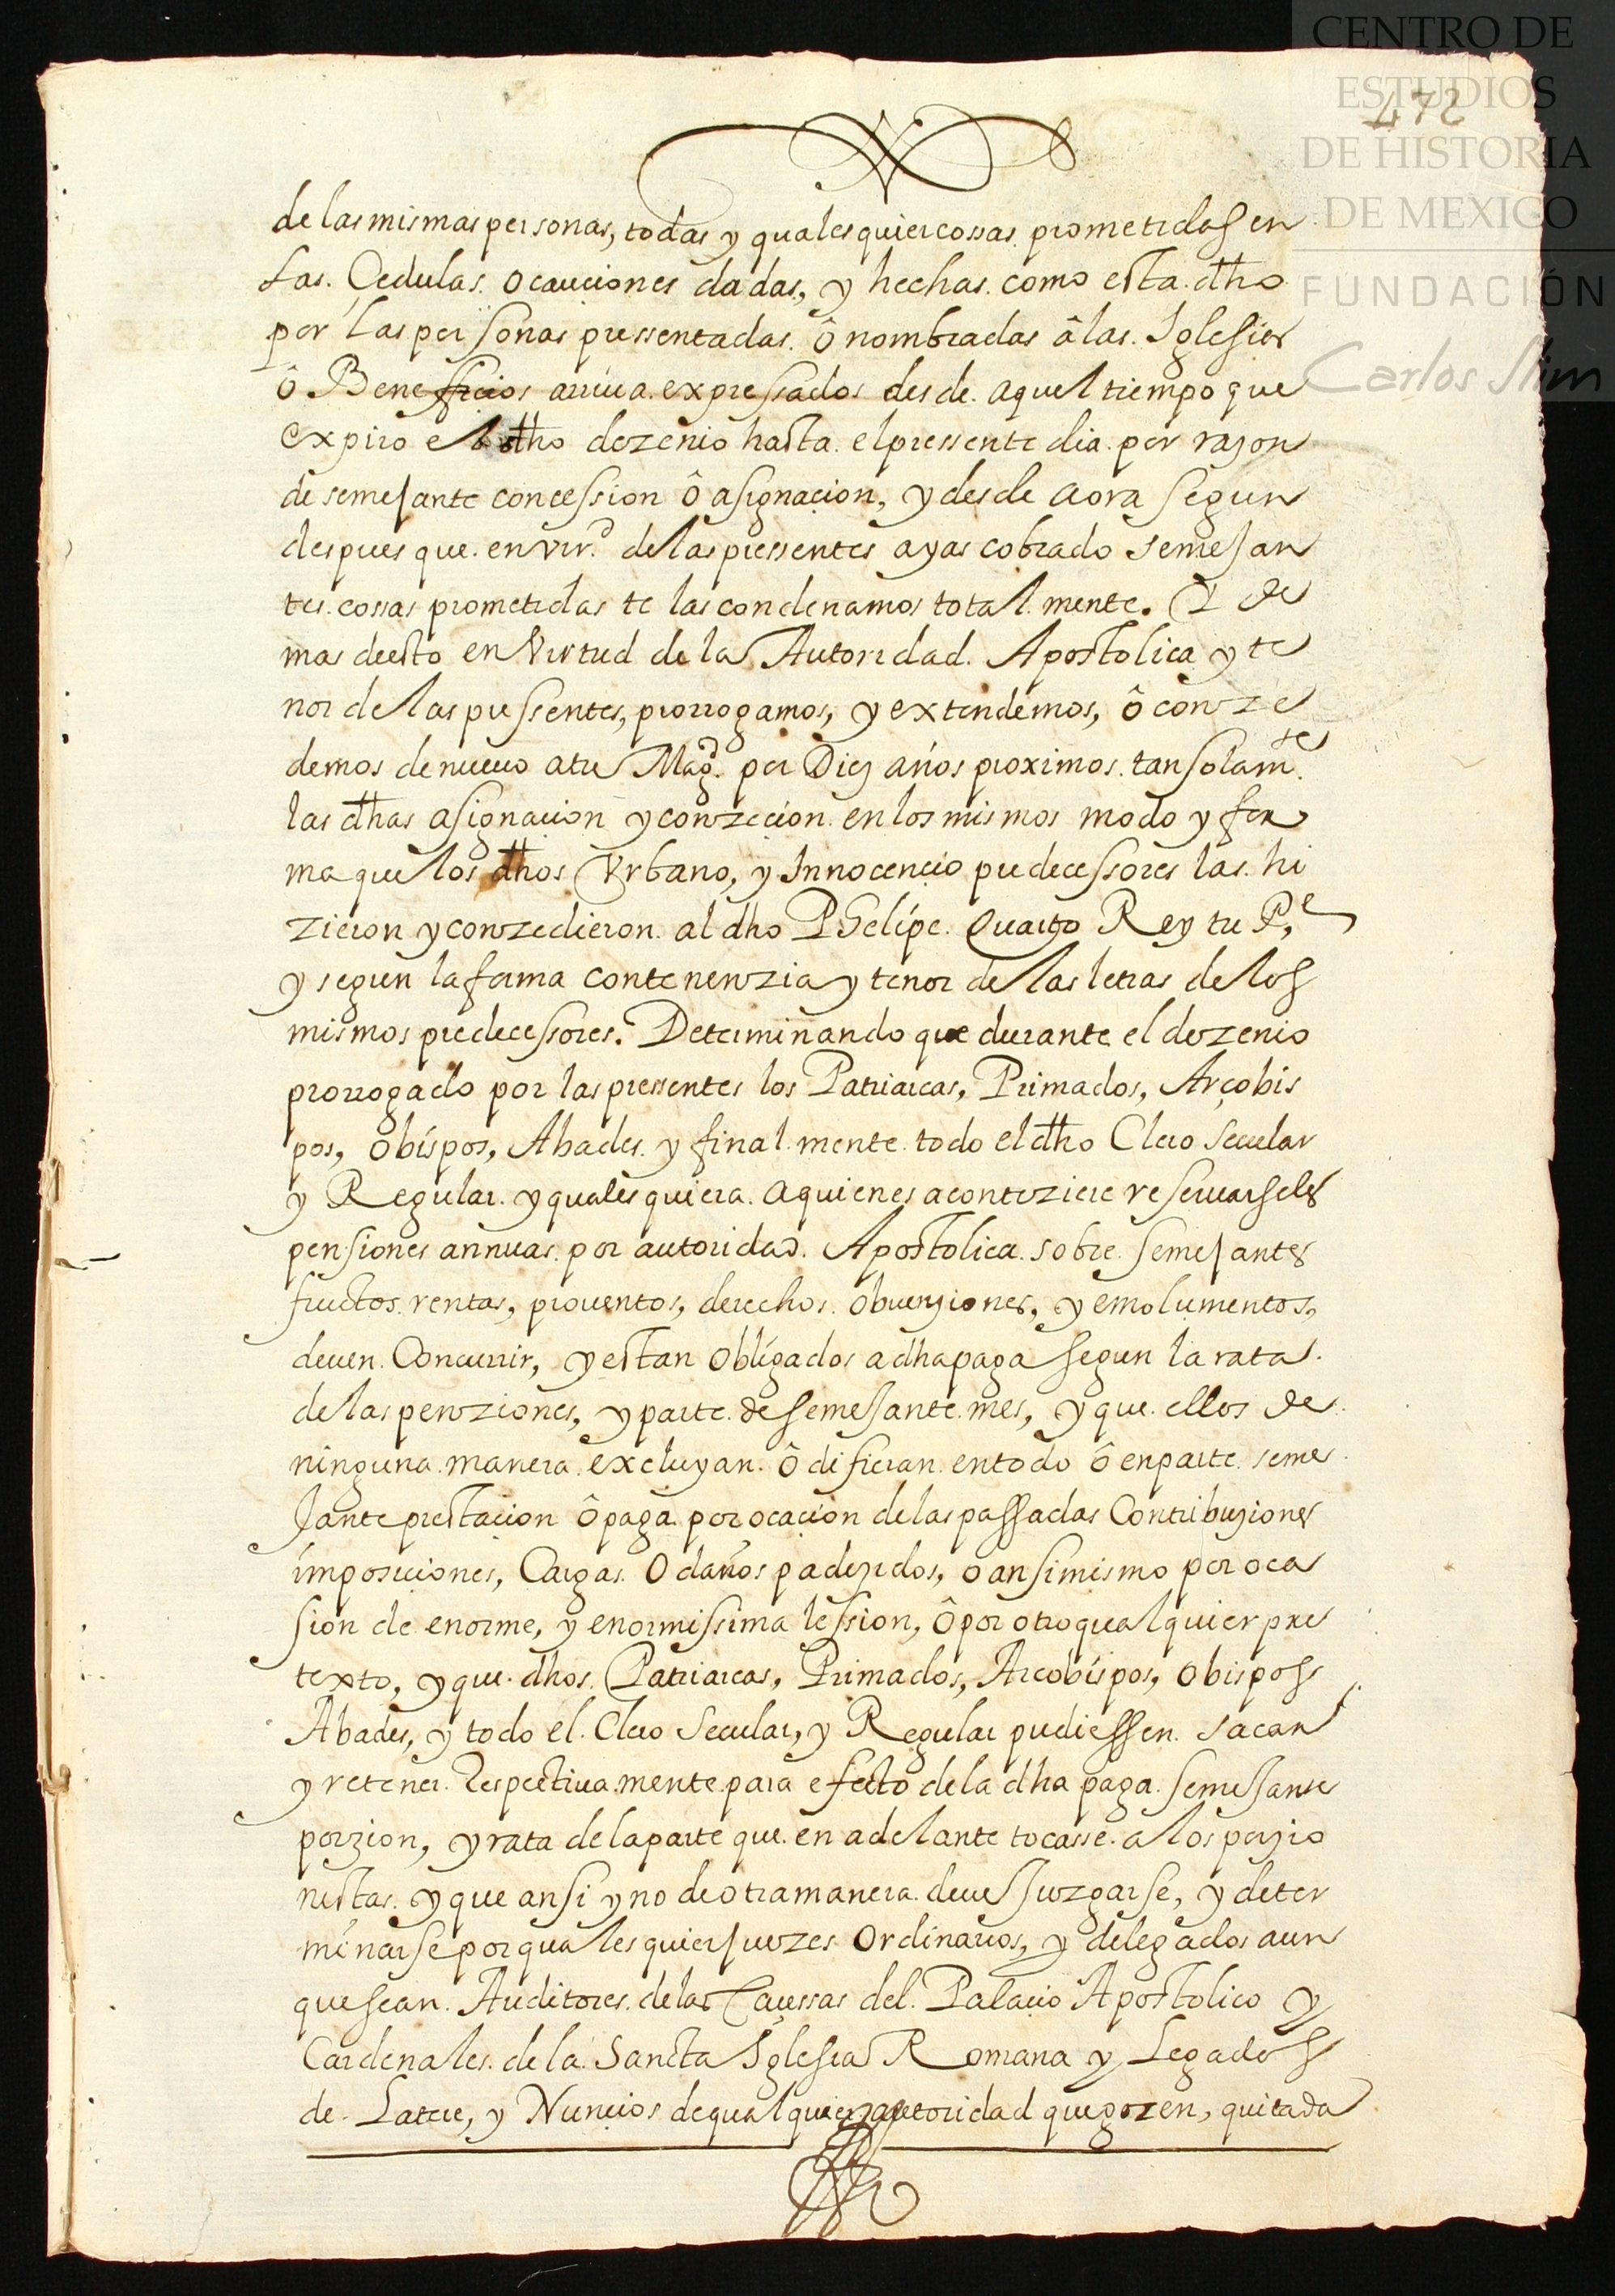 CENTRO DE
ESTUDIOS
DE HISTORIA
DE MEXICO
FUNDACIÓN
Carlos Slim
472
de las mismas personas, todas y qualesquier cossas prometidas en
las. Cedulas. o cauciones dadas, y hechas como esta. dho
por las personas pressentadas. ô nombradas â las. Iglesias
ô Beneficios arriua. expressados desde. aquel tiempo que
expiro el dho dezenio hasta. el pressente dia. por razon
de semejante concession ô asignacion, y desde aora segun
despues que. en vir.d de las pressentes ayas cobrado semejan
tes. cossas prometidas te las condenamos total mente. Y de
mas deesto en Virtud de la Autoridad. Apostolica y te
nor de las pressentes, prorrogamos, y extendemos, ô conze
demos de nueuo a tu Mag.d por Diez años proximos. tan solam.te
las dhas asignacion y conzecion. en los mismos modo y for
ma que los dhos Vrbano, y Innocencio predecessores las. hi
zieron y conzedieron. al dho Phelipe. Quarto Rey tu P.e
y segun la forma contenenzia y tenor de las letras de los
mismos predecessores. Determinando que durante el dezenio
prorrogado por las pressentes los Patriarcas, Primados, Arçobis
pos, obispos, Abades. y final mente todo el dho Clero Secular
y Regular. y quales quiera. a quienes aconteziere reseruarseles
pensiones annuas. por autoridad. Apostolica. sobre. semejantes
fructos. rentas, prouentos, derechos. obuenziones, y emolumentos,
deuen. Concurrir, y estan obligados a dha paga segun la rata.
de las penziones, y parte. de semejante. mes, y que. ellos de
ninguna. manera. excluyan. ô difieran. en todo ô en parte. seme
jante prestacion ô paga por ocacion de las passadas Contribuziones
imposiciones, Cargas. o daños padezidos, o ansimismo por oca
sion de enorme, y enormissima lession, ô por otro qualquier pre
texto, y que. dhos. Patriarcas, Primados, Arcobispos, obispos
Abades, y todo el. Clero Secular, y Regular pudiessen. sacar
y retener. Respectiua.mente para efecto de la dha paga. semejante
porzion, y rata de la parte que. en adelante tocasse. a los penzio
nistas. y que ansi y no de otra manera. deue Juzgarse, y deter
minarse por quales quier Juezes Ordinarios, y delegados aun
que sean. Auditores. de las Caussas del. Palacio Apostolico y
Cardenales. de la Sancta Iglesia Romana y Legados
de. Latere, y Nuncios de qualquier autoridad que gozen, quitada